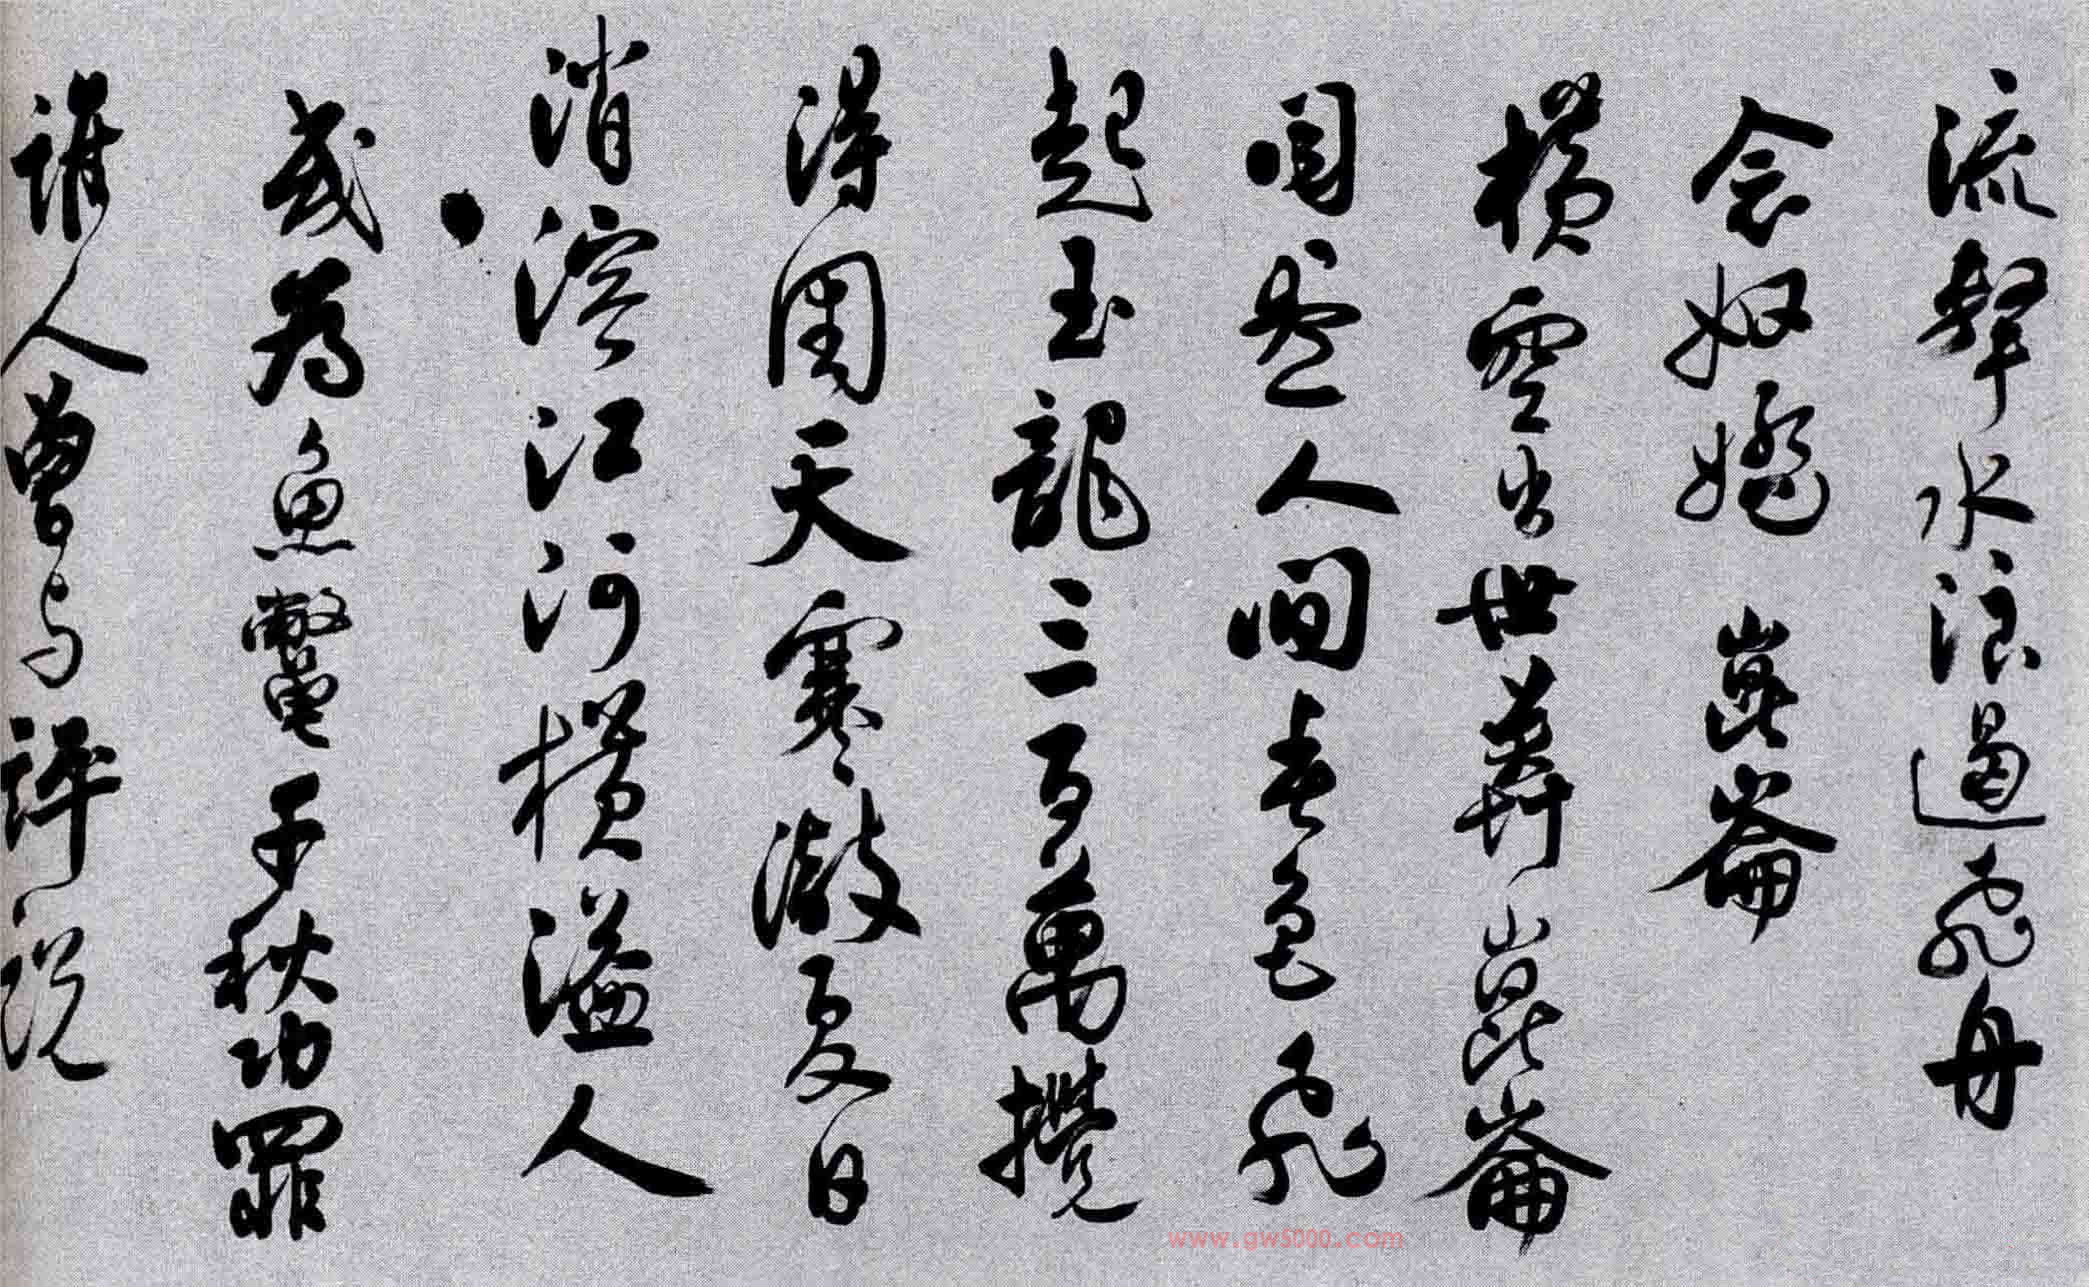 流擊水浪遏飛舟
念奴嬌 崑崙
橫空出世莽崑崙
閱盡人間春色飛
起玉龍三百萬攪
得周天寒澈夏日
消溶江河橫溢人
或為魚鼈千秋功罪
誰人曾与評說
www.gw5000.com